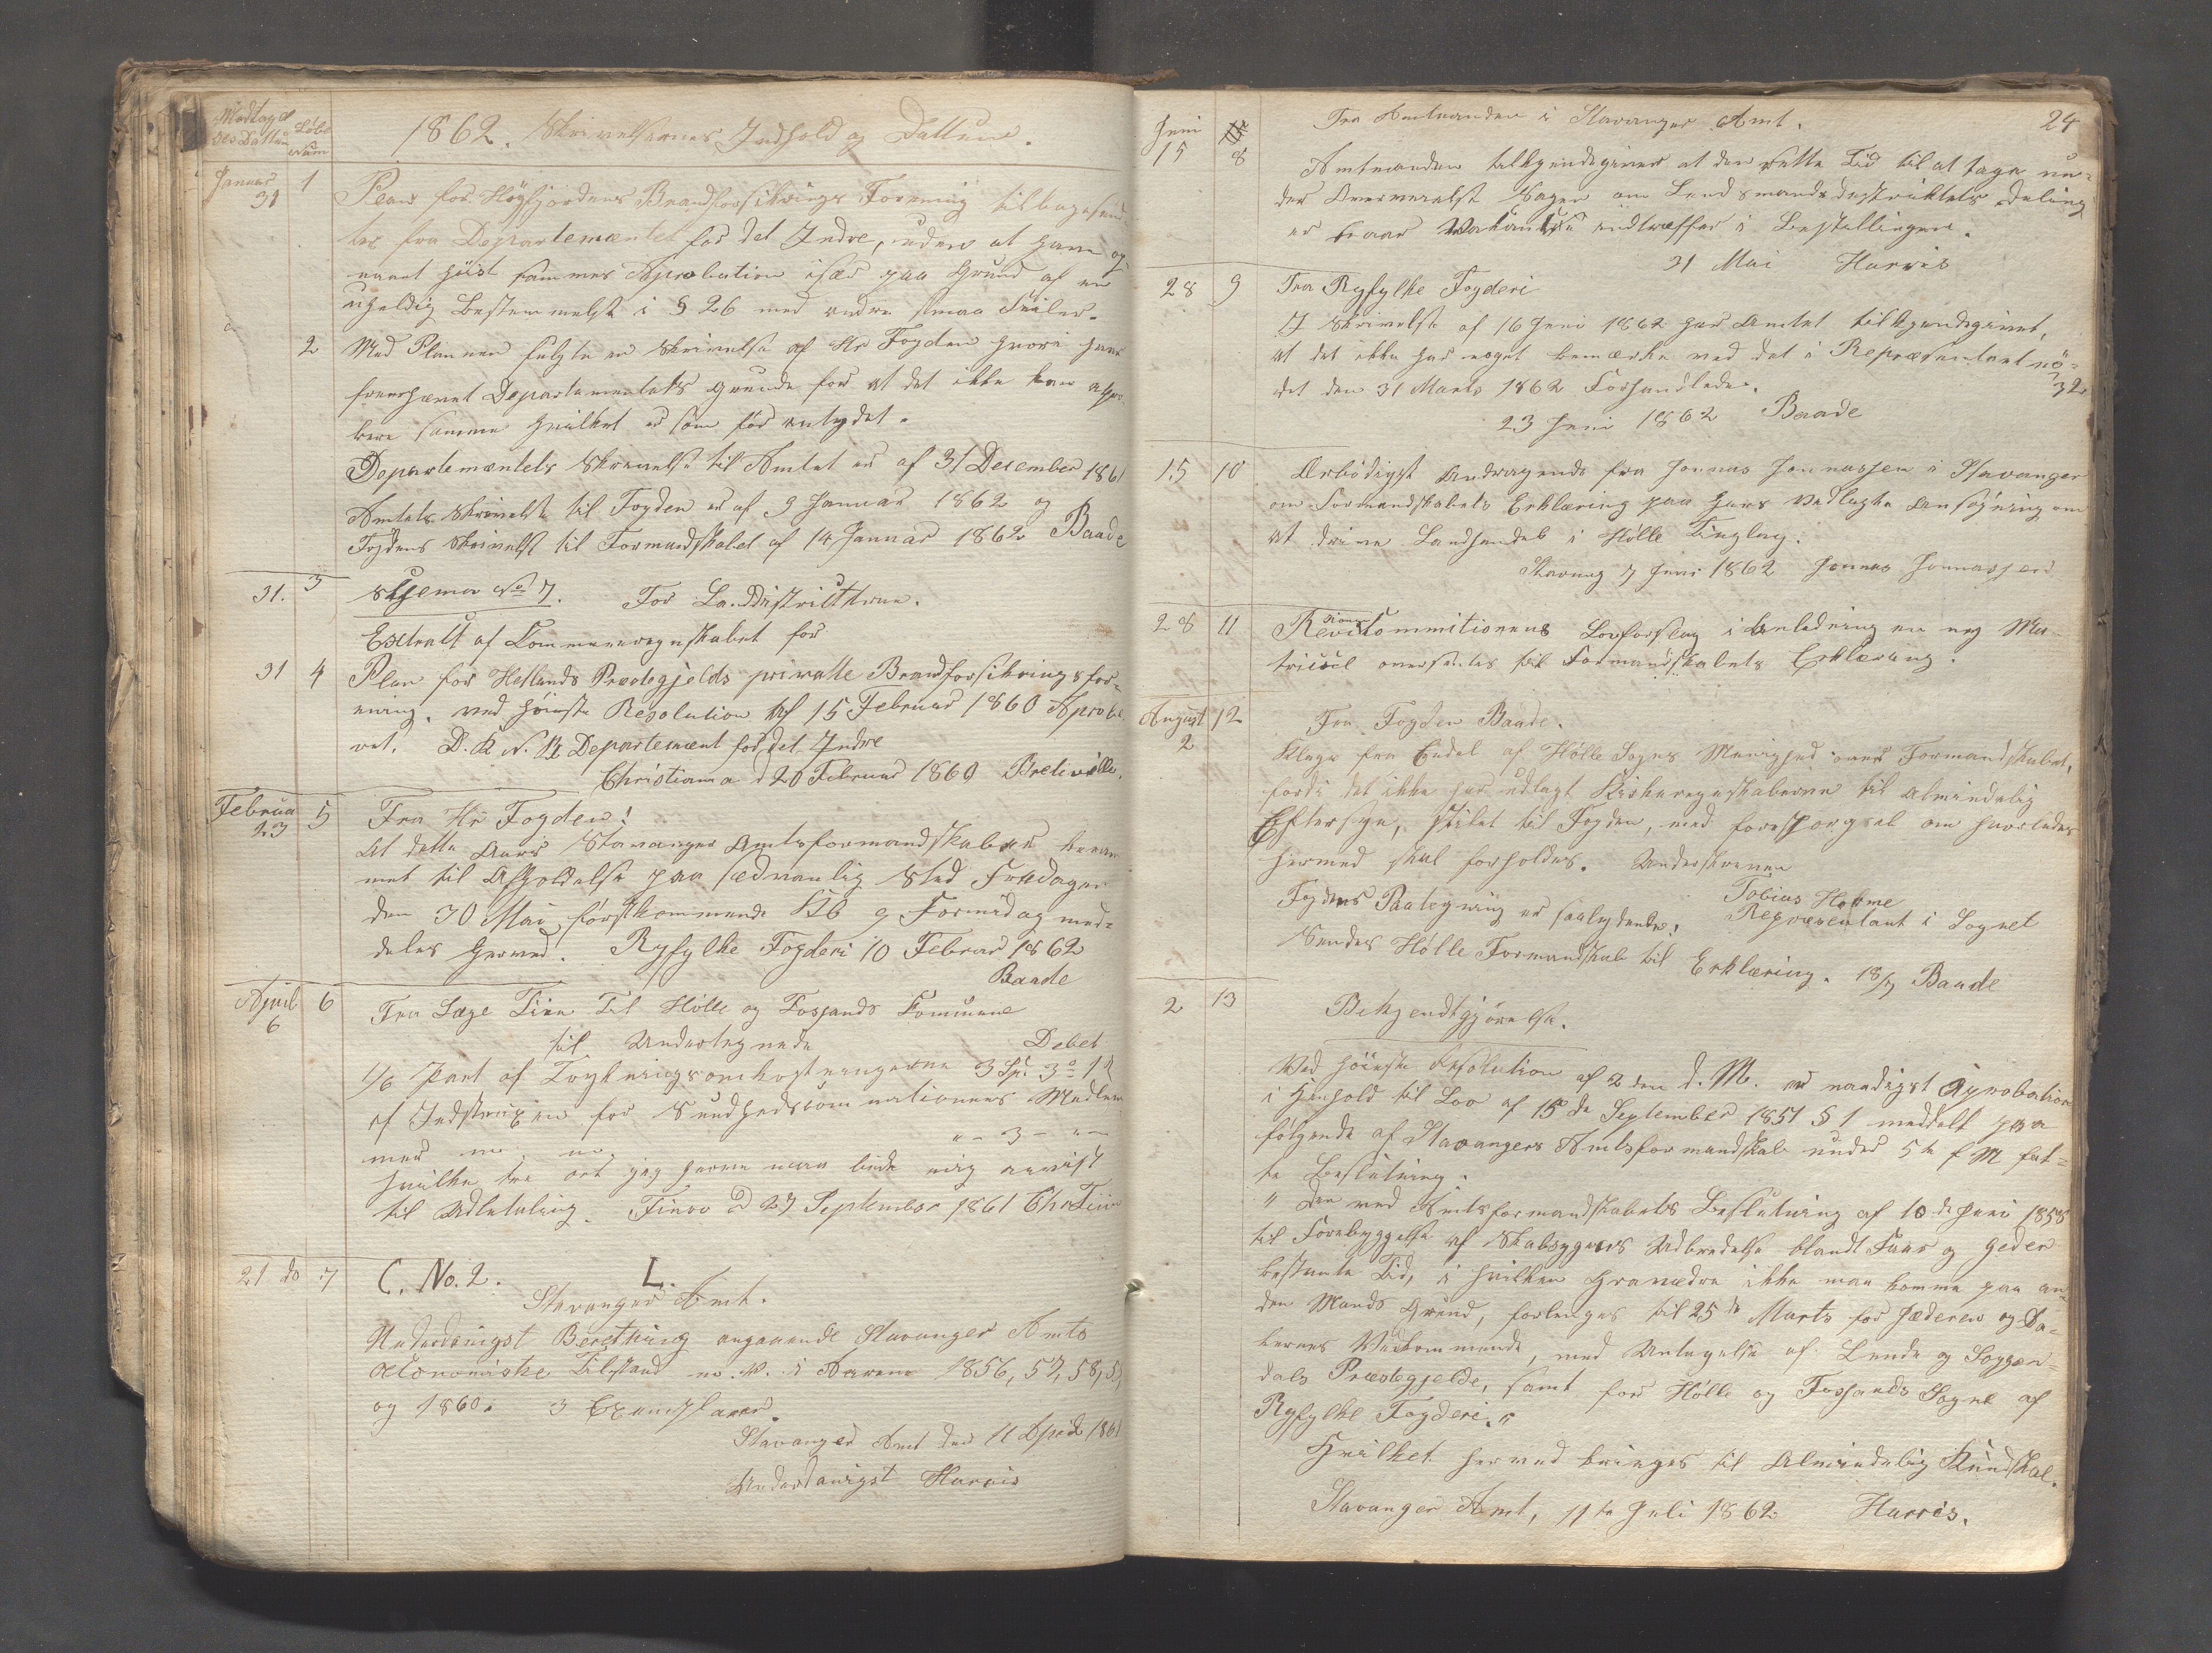 Modtagel
ses Dattum
Löbe
Num
1862. Skrivelsernes Indhold og Dattum.
Januar
31
1
Plan for Høgsfjordens Brandforsikrings Forening tilbagesend-
tes fra Departemæntet for det Indre, uden at have op
naaet høist sammes Aprobation især paa Grund af en
uheldig Bestemmelse i § 26 med andre smaa Feiler.
2
Med Plannen fulgte en Skrivelse af Hr Fogden hvori har
fremhævet Departementets grunde for at det ikke kan apro
bere samme hvilket er som før antydet.
Departemæntets Skrivelse til Amtet er af 31 December 1861
Amtets Skrivelse til Fogden er af 9 Januar 1862 og
Fogdens Skrivelse til Formandskabet af 14 Januar 1862 Baade
31.
3
Skjema No 7. For Landdistrikterne.
Extrakt af Kommuneregnskabet for
31
4
Plan for Hetlands Præstegjelds privatte Brandforsikringsfor-
ening, ved höieste Resolution af 15 Februar 1860 Aprobe
ret. D. K. N. R. Departemænt for det Indre
Christiania d 20 Februar 1860 Bretiville.
Februar
23
5
Fra Hr Fogden!
At dette Aars Stavanger Amtsformandskab er beram
met til Afholdelse paa sædvanlig Sted Fredagen
den 30 Mai førstkommende Kl 9 Formidag med-
deles herved. Ryfylke Fogderi 10 Februar 1862
Baade
April
6
6
Fra Læge Tiin Til Hölle og Fossands Kommune
til Undertegnede Debet
1/6 Part af Trykningsomkostningerne 3 Sp. 3
af Instruxen for Sundhedscommissionens Medlem
mer
" - 3 - " -
hvilke tre ort jeg herved maa bede mig anvist
til Udbetaling. Finnö D 27 September 1861 Chr Tiin
21 do
7
C. No. 2. L.
Stavanger Amt.
Underdanigst Beretning angaaende Stavanger Amts
økonomiske Tilstand m. v. i Aarene 1856, 57, 58, 59,
og 1860. 3 Exemplarer.
Stavanger Amt den 11 April 1861
Underdanigst Harris
24
Juni
15
8
Fra Amtmanden i Stavanger Amt.
Amtmanden tilkjendegiver at den rette Tid til at tage un-
der Overveielse Sagen om Lensmandsdistriktets Deling
er naar Vakantse indtræffer i Bestillingen.
31 Mai Harris
28
9
Fra Ryfylke Fogderi
I Skrivelse af 16 Juni 1862 har Amtet tilkjendegivet,
at det ikke har noget bemærke ved det i Repræsentantmö-
det den 31 Marts 1862 Forhandlede.
32
23 Juni 1862 Baade
15
10
Ærbödigst Andragende fra Jonnas Jonnassen i Stavanger
om Formandskabets Erklæring paa hans vedlagte Ansøgning om
at drive Landhandel i Hölle Tinglag.
Stavang 7 Juni 1862 Jonnas Jonnassen
28
11
Revisionscommitionens Lovforslag i Anledning en ny Ma-
tricul oversendes til Formandskabets Erklæring.
August
2
12
Fra Fogden Baade.
Klage fra Endel af Hölle Sogns Menighed over Formandskabet,
fordi det ikke har udlagt Kirkeregnskaberne til almindelig
Eftersyn, stilet til Fogden, med forespørgsel om hvorledes
hermed skal forholdes. Underskreven
Tobias Holme
Repræsentant i Sognet
Fogdens Paategning er saalydende:
Sendes Hölle Formandskab til Erklæring. 18/7 Baade
2
13
Bekjendtgjörelse.
Ved höieste Resolution af 2 den d. M. er naadigst Aprobation
i Henhold til Lov af 15 de September 1851 § 1 meddelt paa
følgende af Stavangers Amtsformandskab under 5te f M fat-
te Beslutning.
" Den ved Amtsformandskabets Beslutning af 10 de Juni 1858
til Forebyggelse af Skabsygens Udbredelse blandt Faar og Geder
bestemte Tid, i hvilken Hvanedre ikke maa komme paa an-
den Mands Grund, forlenges til 25 de Marts for Jæderen og Da-
lernes Vedkommende, med Undtagelse af Lunde og Soggen-
dals Præstegjelde, samt for Hölle og Fossands Sogne af
Ryfylke Fogderi."
Hvilket herved bringes til Almindelig Kundskab.
Stavanger Amt, 11te Juli 1862 Harris.